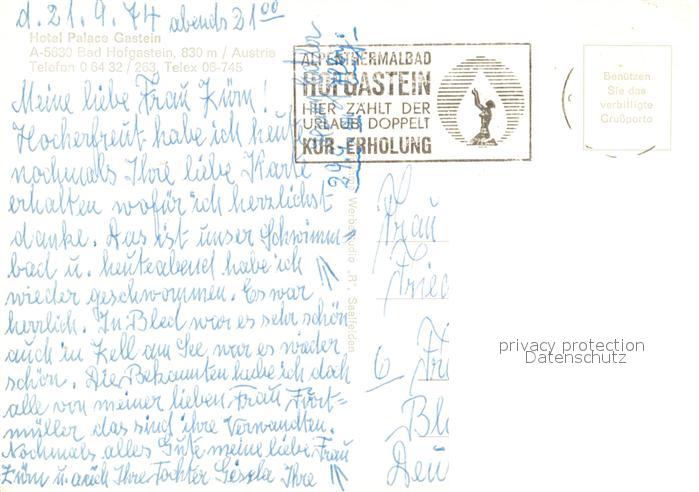 d. 21.9.74 abends 21 00
Hotel Palace Gastein
A-5630 Bad Hofgastein, 830 m / Austria
Telefon 0 64 32 / 263, Telex 06-745
Meine liebe Frau Zürn!
Hocherfreut habe ich heute
nochmals Ihre liebe Karte
erhalten wofür ich herzlichst
danke. Das ist unser Schwimm=
bad u. heuteabend habe ich
wieder geschwommen. Es war
herrlich. In Bled war es sehr schön
auch in Zell am See war es wieder
schön. Die Bekannten habe ich doch
alle von meiner lieben Frau Fört=
müller das sind ihre Verwandten.
Nochmals alles Gute meine liebe Frau
Zürn u. auch Ihre Tochter Gisela Ihre
ALPENTHERMALBAD
HOFGASTEIN
HIER ZÄHLT DER
URLAUB DOPPELT
KUR-ERHOLUNG
Benützen
Sie das
verbilligte
Grußporto
Werbstudio „R", Saalfelden
Frau
6
privacy protection
Datenschutz